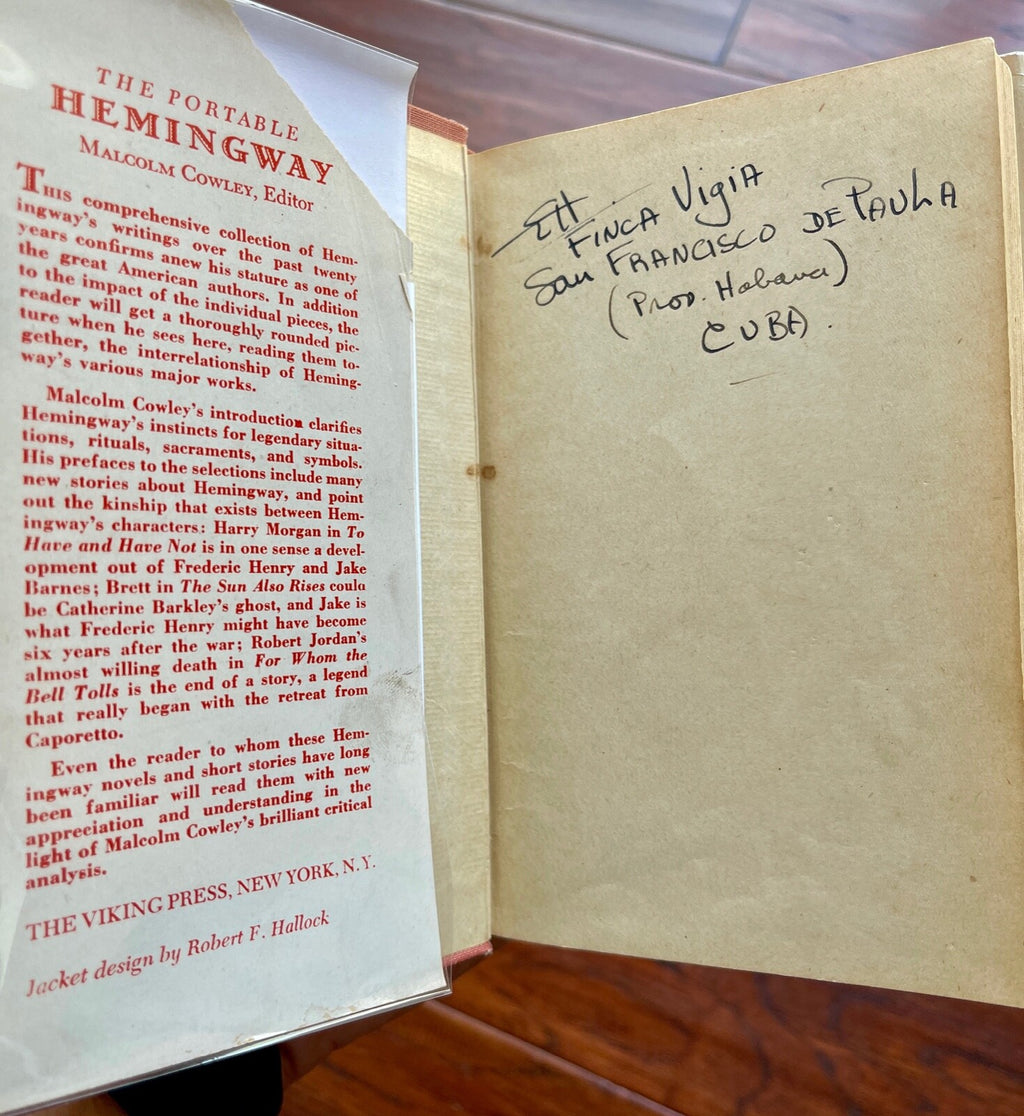 THE PORTABLE
HEMINGWAY
MALCOLM COWLEY, Editor
THIS comprehensive collection of Hem-
ingway's writings over the past twenty
years confirms anew his stature as one of
the great American authors. In addition
to the impact of the individual pieces, the
reader will get a thoroughly rounded pic-
ture when he sees here, reading them to-
gether, the interrelationship of Heming-
way's various major works.
Malcolm Cowley's introduction clarifies
Hemingway's instincts for legendary situa-
tions, rituals, sacraments, and symbols.
His prefaces to the selections include many
new stories about Hemingway, and point
out the kinship that exists between Hem-
ingway's characters: Harry Morgan in To
Have and Have Not is in one sense a devel-
opment out of Frederic Henry and Jake
Barnes; Brett in The Sun Also Rises could
be Catherine Barkley's ghost, and Jake is
what Frederic Henry might have become
six years after the war; Robert Jordan's
almost willing death in For Whom the
Bell Tolls is the end of a story, a legend
that really began with the retreat from
Caporetto.
Even the reader to whom these Hem-
ingway novels and short stories have long
been familiar will read them with new
appreciation and understanding in the
light of Malcolm Cowley's brilliant critical
analysis.
THE VIKING PRESS, NEW YORK, N.Y.
Jacket design by Robert F. Hallock
EH
FINCA VigiA
San FRANCISCO DE PAULA
(Prov. Habana)
CUBA.